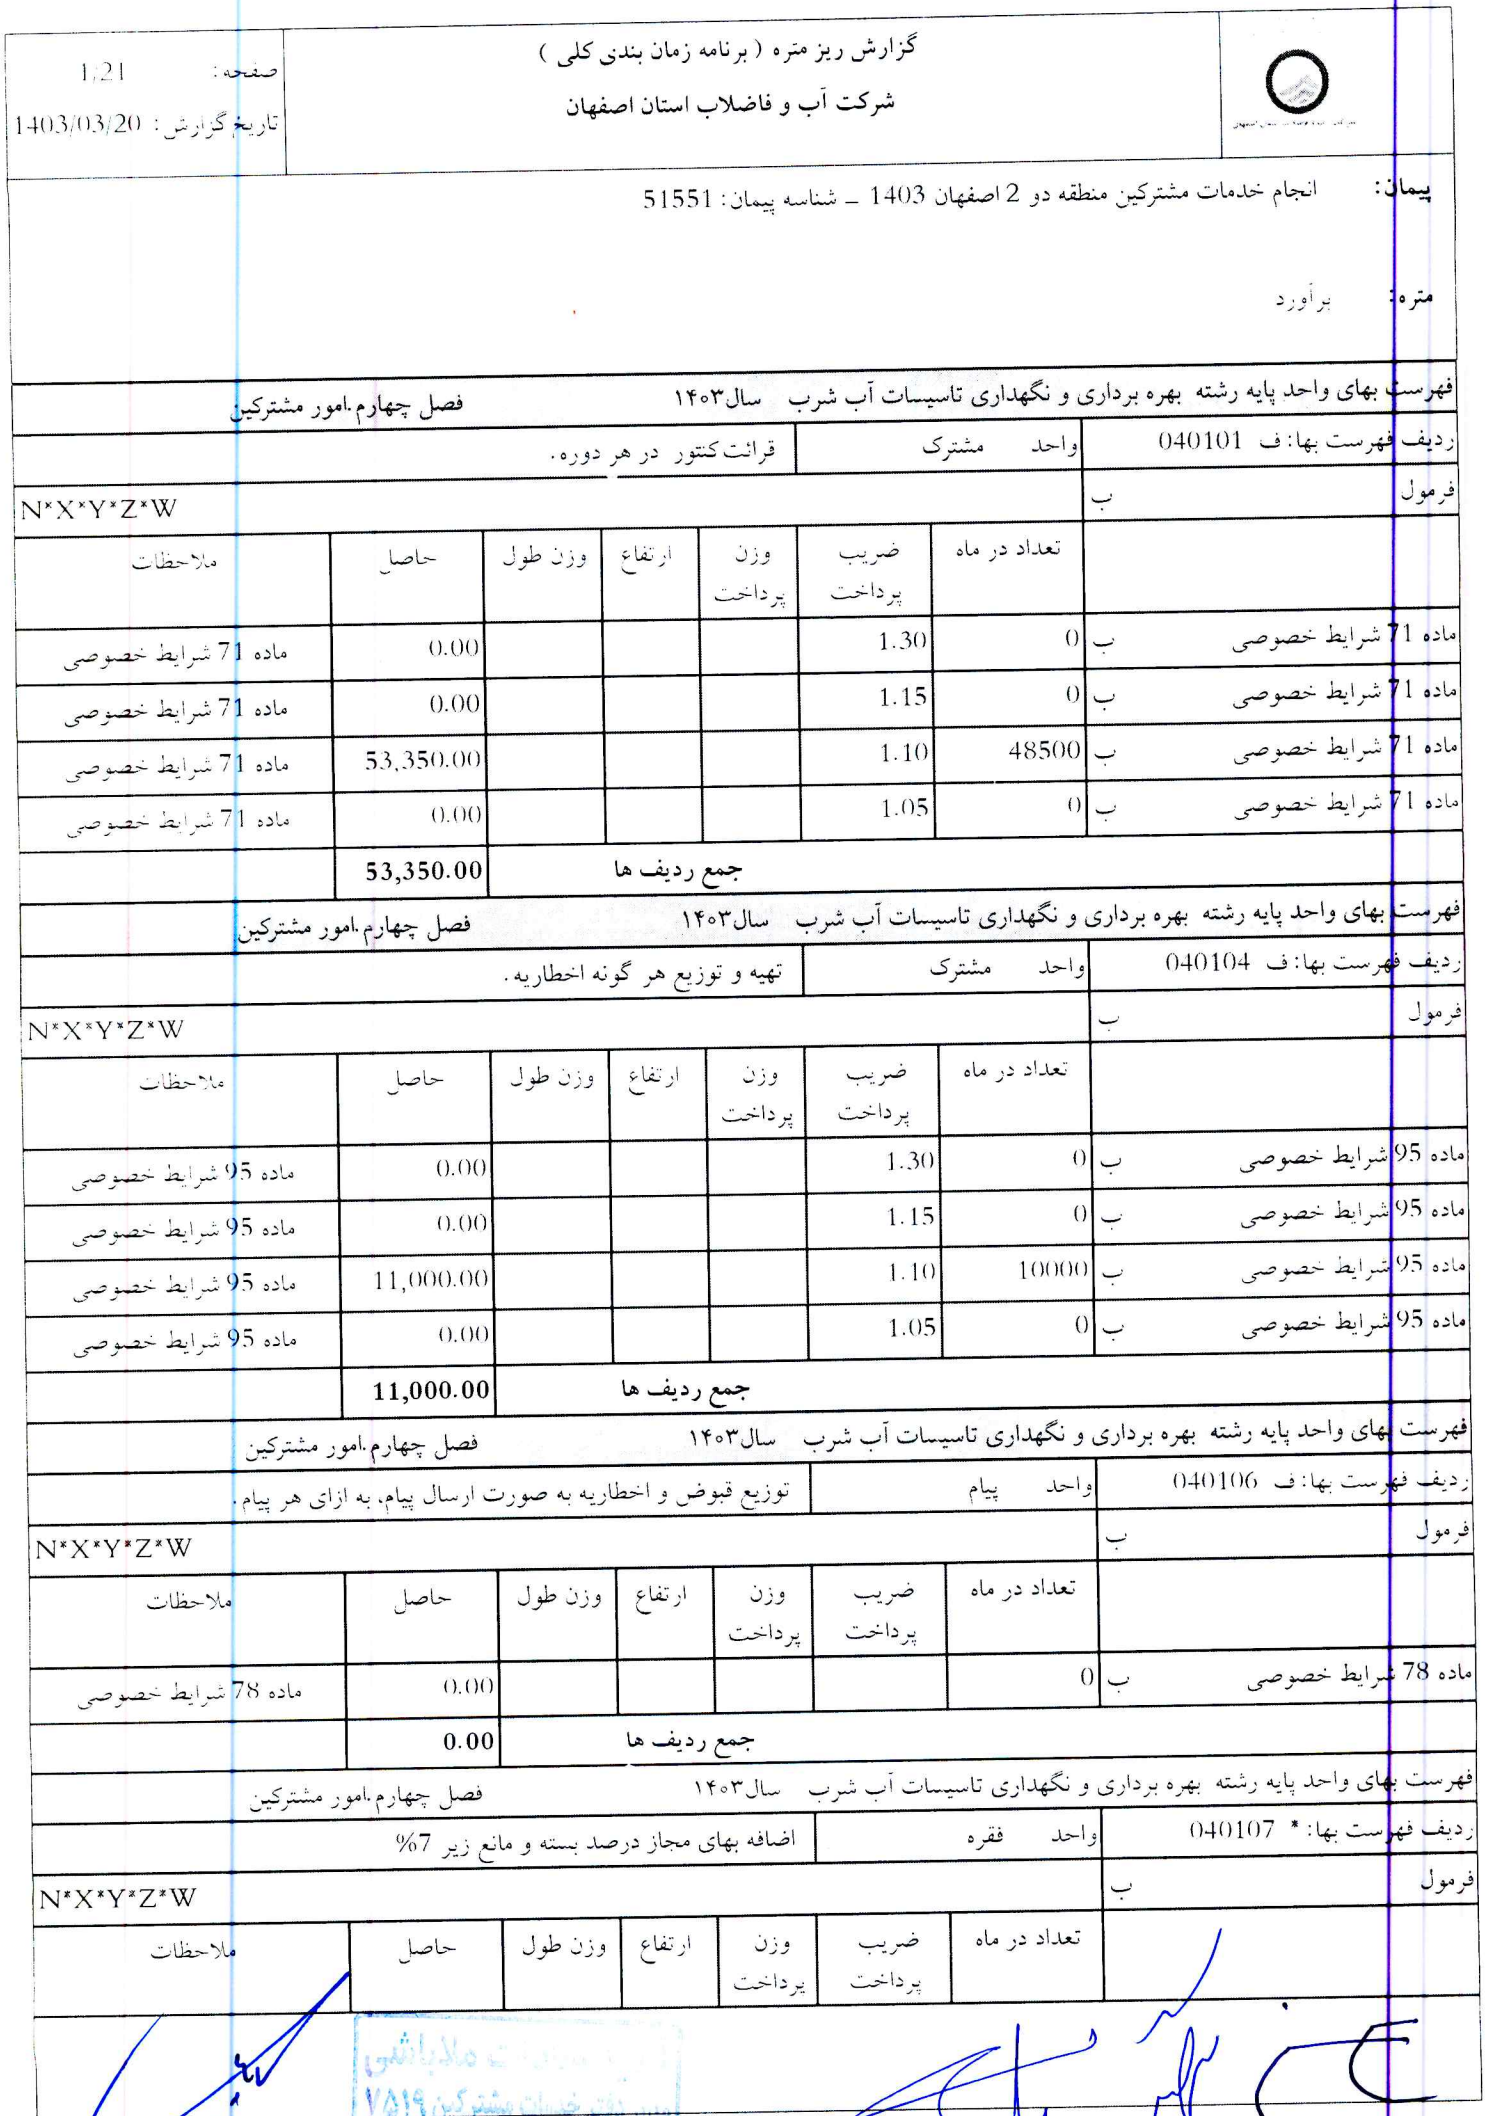 گزارش ریز متره ( برنامه زمان بندی کلی )
شرکت آب و فاضلاب استان اصفهان
صفحه: 1/21
تاریخ گزارش: 1403/03/20
پیمان: انجام خدمات مشترکین منطقه دو 2 اصفهان 1403 ـ شناسه پیمان: 51551
متره: برآورد
فهرست بهای واحد پایه رشته بهره برداری و نگهداری تاسیسات آب شرب سال۱۴۰۳ فصل چهارم.امور مشترکین
ردیف فهرست بها: ف 040101 واحد مشترک قرائت کنتور در هر دوره.
فرمول ب N*X*Y*Z*W
تعداد در ماه ضریب پرداخت وزن پرداخت ارتفاع وزن طول حاصل ملاحظات
ماده 71 شرایط خصوصی ب 0 1.30 0.00 ماده 71 شرایط خصوصی
ماده 71 شرایط خصوصی ب 0 1.15 0.00 ماده 71 شرایط خصوصی
ماده 71 شرایط خصوصی ب 48500 1.10 53,350.00 ماده 71 شرایط خصوصی
ماده 71 شرایط خصوصی ب 0 1.05 0.00 ماده 71 شرایط خصوصی
جمع ردیف ها 53,350.00
فهرست بهای واحد پایه رشته بهره برداری و نگهداری تاسیسات آب شرب سال۱۴۰۳ فصل چهارم.امور مشترکین
ردیف فهرست بها: ف 040104 واحد مشترک تهیه و توزیع هر گونه اخطاریه.
فرمول ب N*X*Y*Z*W
تعداد در ماه ضریب پرداخت وزن پرداخت ارتفاع وزن طول حاصل ملاحظات
ماده 95 شرایط خصوصی ب 0 1.30 0.00 ماده 95 شرایط خصوصی
ماده 95 شرایط خصوصی ب 0 1.15 0.00 ماده 95 شرایط خصوصی
ماده 95 شرایط خصوصی ب 10000 1.10 11,000.00 ماده 95 شرایط خصوصی
ماده 95 شرایط خصوصی ب 0 1.05 0.00 ماده 95 شرایط خصوصی
جمع ردیف ها 11,000.00
فهرست بهای واحد پایه رشته بهره برداری و نگهداری تاسیسات آب شرب سال۱۴۰۳ فصل چهارم.امور مشترکین
ردیف فهرست بها: ف 040106 واحد پیام توزیع قبوض و اخطاریه به صورت ارسال پیام، به ازای هر پیام.
فرمول ب N*X*Y*Z*W
تعداد در ماه ضریب پرداخت وزن پرداخت ارتفاع وزن طول حاصل ملاحظات
ماده 78 شرایط خصوصی ب 0 0.00 ماده 78 شرایط خصوصی
جمع ردیف ها 0.00
فهرست بهای واحد پایه رشته بهره برداری و نگهداری تاسیسات آب شرب سال۱۴۰۳ فصل چهارم.امور مشترکین
ردیف فهرست بها: * 040107 واحد فقره اضافه بهای مجاز درصد بسته و مانع زیر 7%
فرمول ب N*X*Y*Z*W
تعداد در ماه ضریب پرداخت وزن پرداخت ارتفاع وزن طول حاصل ملاحظات
دفتر خدمات مشترکین ۷۵۱۹